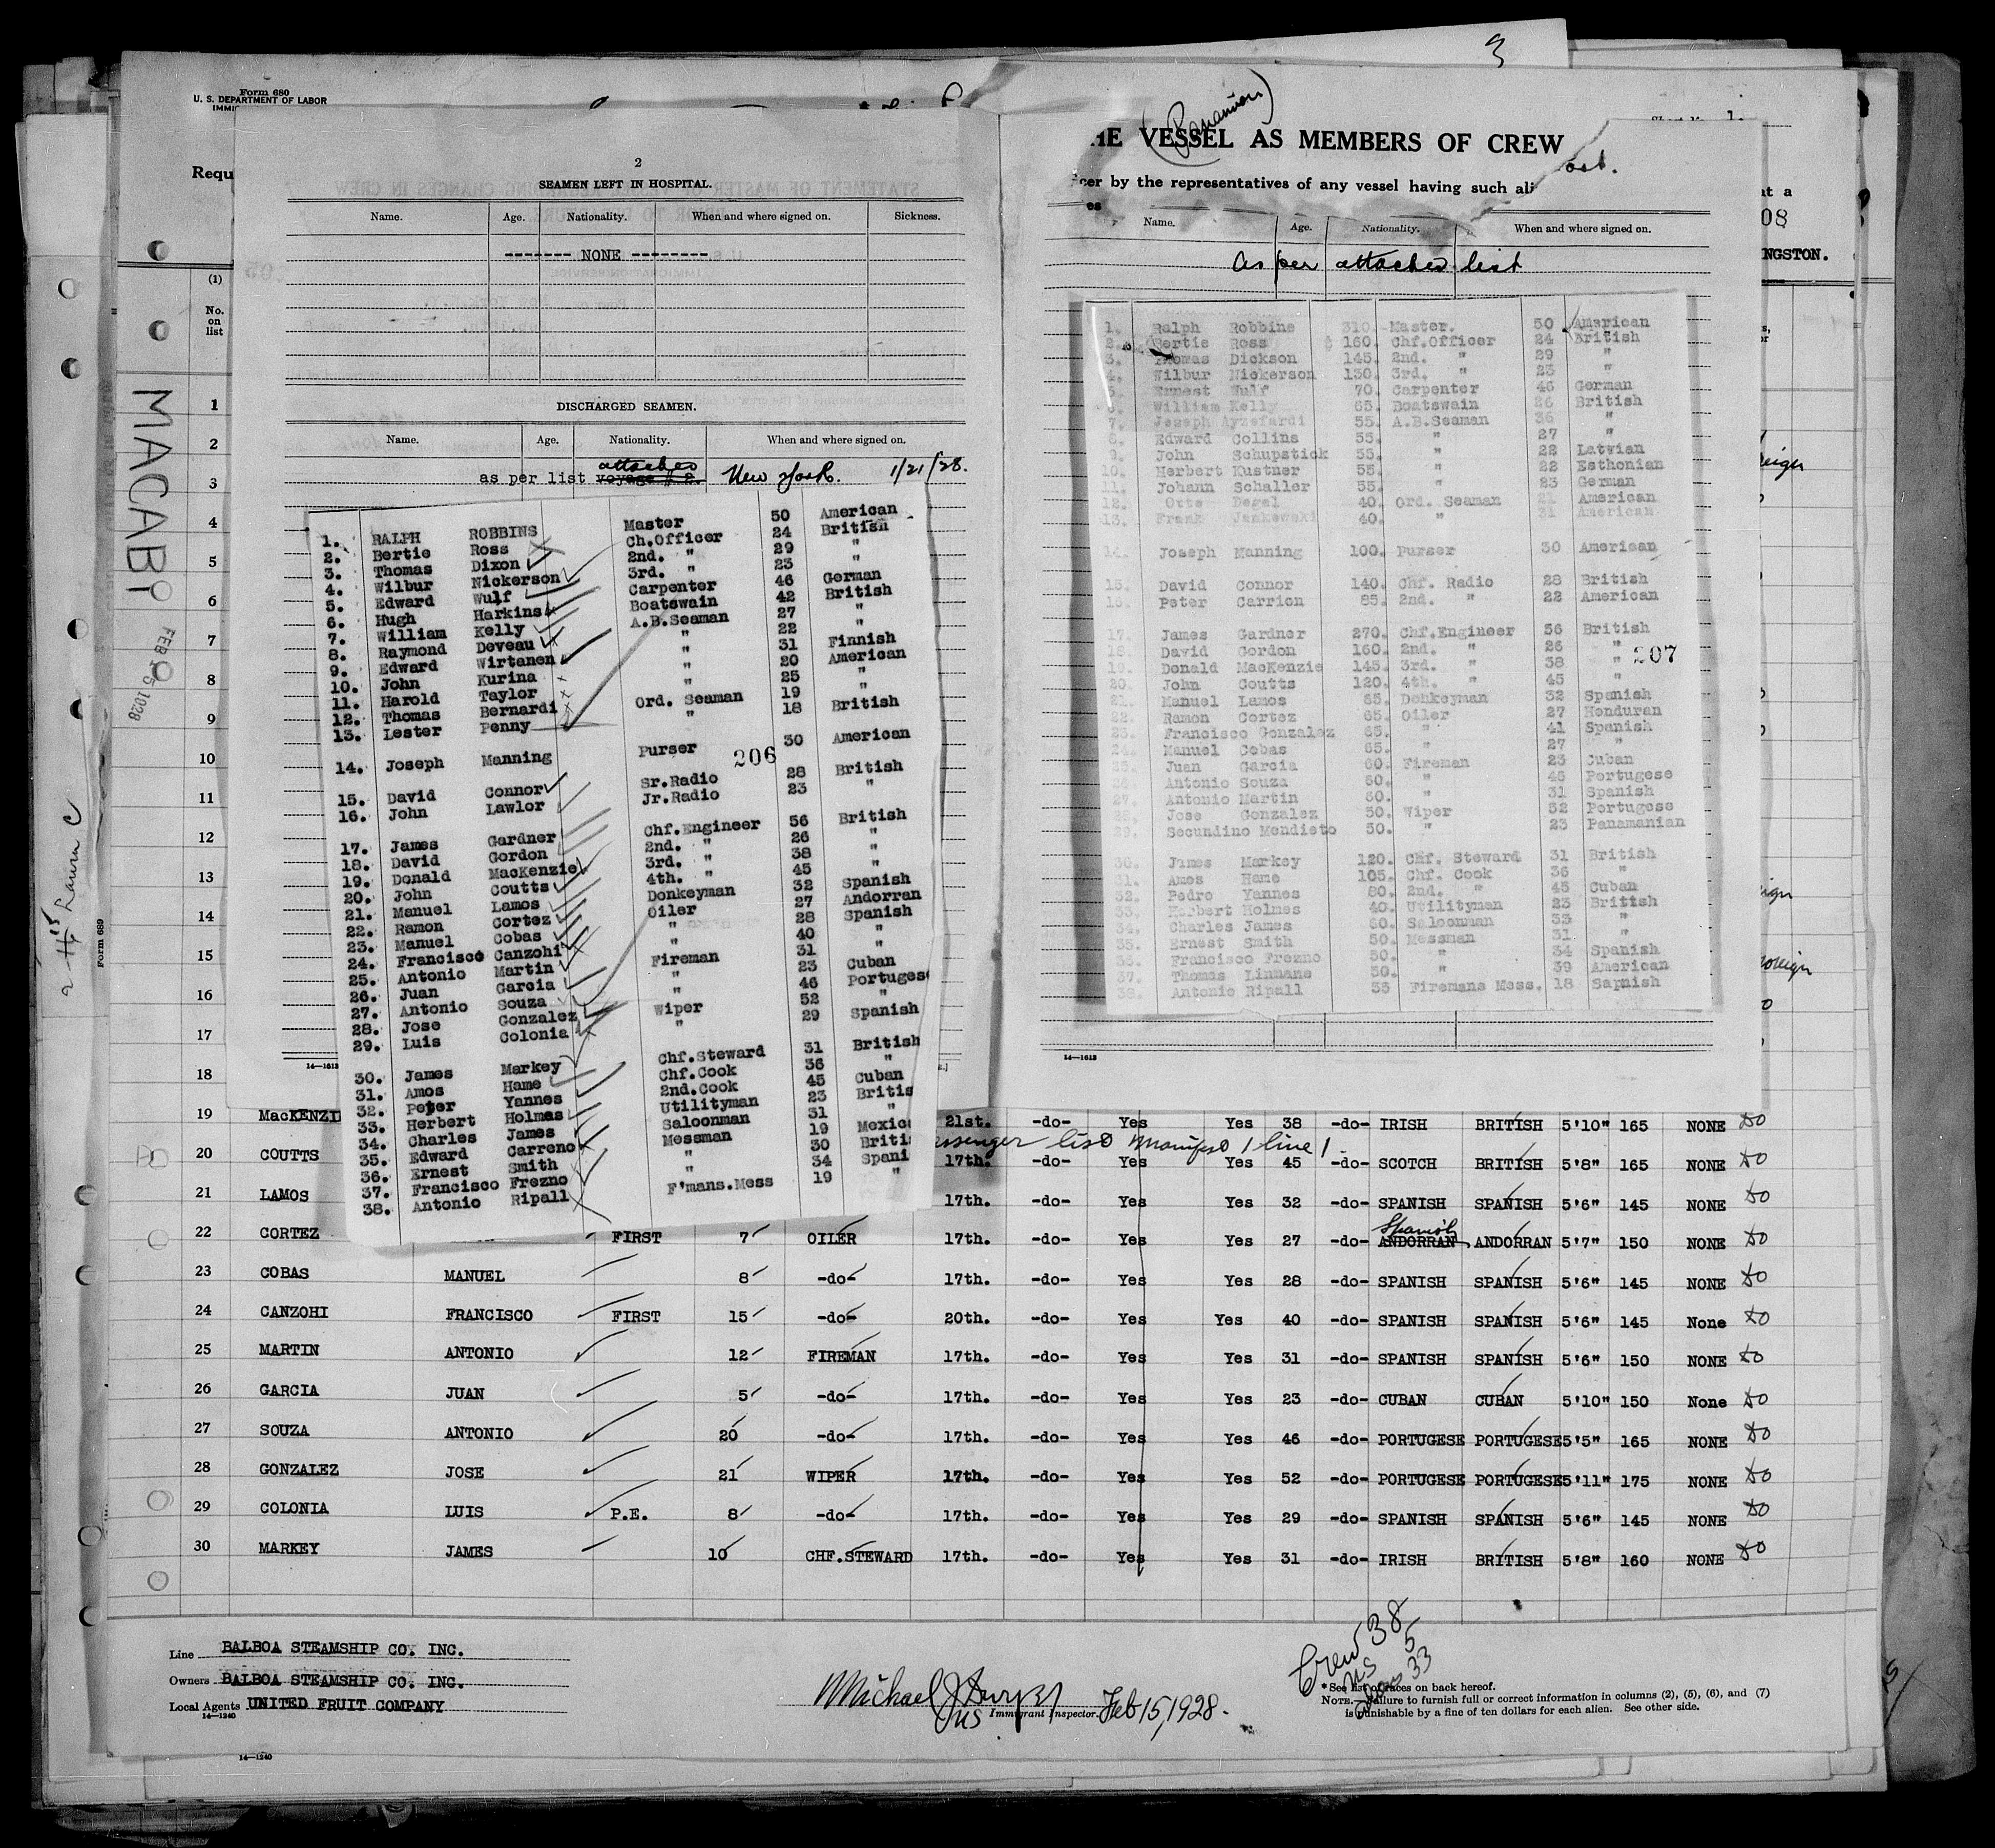 Form 680
U. S. DEPARTMENT OF LABOR
Requ
(1)
No.
on
list
MACABI
FEB 15 1928
Form 689
2
SEAMEN LEFT IN HOSPITAL.
Name. Age. Nationality. When and where signed on. Sickness.
------- NONE --------
DISCHARGED SEAMEN.
Name. Age. Nationality. When and where signed on.
attached
as per list voyage # 2. New York. 1/21/28.
1. RALPH ROBBINS Master 50 American
2. Bertie Ross Ch.Officer 24 British
3. Thomas Dixon 2nd. " 29 "
4. Wilbur Nickerson 3rd. " 23 "
5. Edward Wulf Carpenter 46 German
6. Hugh Harkins Boatswain 42 British
7. William Kelly A.B.Seaman 27 "
8. Raymond Deveau " 22 "
9. Edward Wirtanen " 31 Finnish
10. John Kurina " 20 American
11. Harold Taylor " 25 "
12. Thomas Bernardi Ord. Seaman 19 "
13. Lester Penny " 18 British
14. Joseph Manning Purser 30 American
206
15. David Connor Sr.Radio 28 British
16. John Lawlor Jr.Radio 23 "
17. James Gardner Chf.Engineer 56 British
18. David Gordon 2nd. " 26 "
19. Donald MacKenzie 3rd. " 38 "
20. John Coutts 4th. " 45 "
21. Manuel Lamos Donkeyman 32 Spanish
22. Ramon Cortez Oiler 27 Andorran
23. Manuel Cobas " 28 Spanish
24. Francisco Canzohi " 40 "
25. Antonio Martin Fireman 31 "
26. Juan Garcia " 23 Cuban
27. Antonio Souza " 46 Portugese
28. Jose Gonzalez Wiper 52 "
29. Luis Colonia " 29 Spanish
30. James Markey Chf.Steward 31 British
31. Amos Hame Chf.Cook 36 "
32. Peter Yannes 2nd.Cook 45 Cuban
33. Herbert Holmes Utilityman 23 Britis
34. Charles James Saloonman 31 "
35. Edward Carreno Messman 19 Mexic
36. Ernest Smith " 30 Briti
37. Francisco Frezno " 34 Spani
38. Antonio Ripall F'mans.Mess 19 "
(Panamian)
HE VESSEL AS MEMBERS OF CREW
cer by the representatives of any vessel having such ali
Name. Age. Nationality. When and where signed on.
As per attached list
1. Ralph Robbins 310. Master. 50 American
2. Bertie Ross 160. Chf.Officer 24 British
3. Thomas Dickson 145. 2nd. " 29 "
4. Wilbur Nickerson 130. 3rd. " 23 "
5. Ernest Wulf 70. Carpenter 46 German
6. William Kelly 65. Boatswain 26 British
7. Joseph Ayzefardi 55. A.B.Seaman 36 "
8. Edward Collins 55. " 27 "
9. John Schupstick 55. " 22 Latvian
10. Herbert Kustner 55. " 22 Esthonian
11. Johann Schaller 55. " 23 German
12. Otto Degel 40. Ord. Seaman 21 American
13. Frank Jankowski 40. " 31 American
14. Joseph Manning 100. Purser 30 American
15. David Connor 140. Chf. Radio 28 British
16. Peter Carrion 85. 2nd. " 22 American
17. James Gardner 270. Chf.Engineer 56 British
18. David Gordon 160. 2nd. " 26 "
19. Donald MacKenzie 145. 3rd. " 38 "
207
20. John Coutts 120. 4th. " 45 "
21. Manuel Lamos 65. Donkeyman 32 Spanish
22. Ramon Cortez 65. Oiler 27 Honduran
23. Francisco Gonzalez 65. " 41 Spanish
24. Manuel Cobas 65. " 27 "
25. Juan Garcia 60. Fireman 23 Cuban
26. Antonio Souza 60. " 46 Portugese
27. Antonio Martin 60. " 31 Spanish
28. Jose Gonzalez 50. Wiper 52 Portugese
29. Secundino Mendieto 50. " 23 Panamanian
30. James Markey 120. Chf. Steward 31 British
31. Amos Hame 105. Chf. Cook 36 "
32. Pedro Yannes 80. 2nd. " 45 Cuban
33. Herbert Holmes 40. Utilityman 23 British
34. Charles James 60. Saloonman 33 "
35. Ernest Smith 50. Messman 31 "
36. Francisco Frezno 50. " 34 Spanish
37. Thomas Linmane 50. " 39 American
38. Antonio Ripall 35 Firemans Mess. 18 Sapnish
14—1613
at a
08
NGSTON.
1
2
3
4
5
6
7
8
9
10
11
12
13
14
15
16
17
18
19 MacKENZI 21st. -do- Yes Yes 38 -do- IRISH BRITISH 5'10" 165 NONE
ssenger list Manifest 1 line 1
20 COUTTS 17th. -do- Yes Yes 45 -do- SCOTCH BRITISH 5'8" 165 NONE
21 LAMOS 17th. -do- Yes Yes 32 -do- SPANISH SPANISH 5'6" 145 NONE
Spanish
22 CORTEZ FIRST 7 OILER 17th. -do- Yes Yes 27 -do- ANDORRAN ANDORRAN 5'7" 150 NONE
23 COBAS MANUEL 8 -do- 17th. -do- Yes Yes 28 -do- SPANISH SPANISH 5'6" 145 NONE
24 CANZOHI FRANCISCO FIRST 15 -do- 20th. -do- Yes Yes 40 -do- SPANISH SPANISH 5'6" 145 None
25 MARTIN ANTONIO 12 FIREMAN 17th. -do- Yes Yes 31 -do- SPANISH SPANISH 5'6" 150 NONE
26 GARCIA JUAN 5 -do- 17th. -do- Yes Yes 23 -do- CUBAN CUBAN 5'10" 150 None
27 SOUZA ANTONIO 20 -do- 17th. -do- Yes Yes 46 -do- PORTUGESE PORTUGESE 5'5" 165 NONE
28 GONZALEZ JOSE 21 WIPER 17th. -do- Yes Yes 52 -do- PORTUGESE PORTUGESE 5'11" 175 NONE
29 COLONIA LUIS P.E. 8 -do- 17th. -do- Yes Yes 29 -do- SPANISH SPANISH 5'6" 145 NONE
30 MARKEY JAMES 10 CHF.STEWARD 17th. -do- Yes Yes 31 -do- IRISH BRITISH 5'8" 160 NONE
Line BALBOA STEAMSHIP CO. INC.
Owners BALBOA STEAMSHIP CO. INC.
Local Agents UNITED FRUIT COMPANY
14—1240
14—1240
Immigrant Inspector. Feb 15, 1928.
Crew 38
US 5
33
* See list of races on back hereof.
NOTE.—Failure to furnish full or correct information in columns (2), (5), (6), and (7)
is punishable by a fine of ten dollars for each alien. See other side.